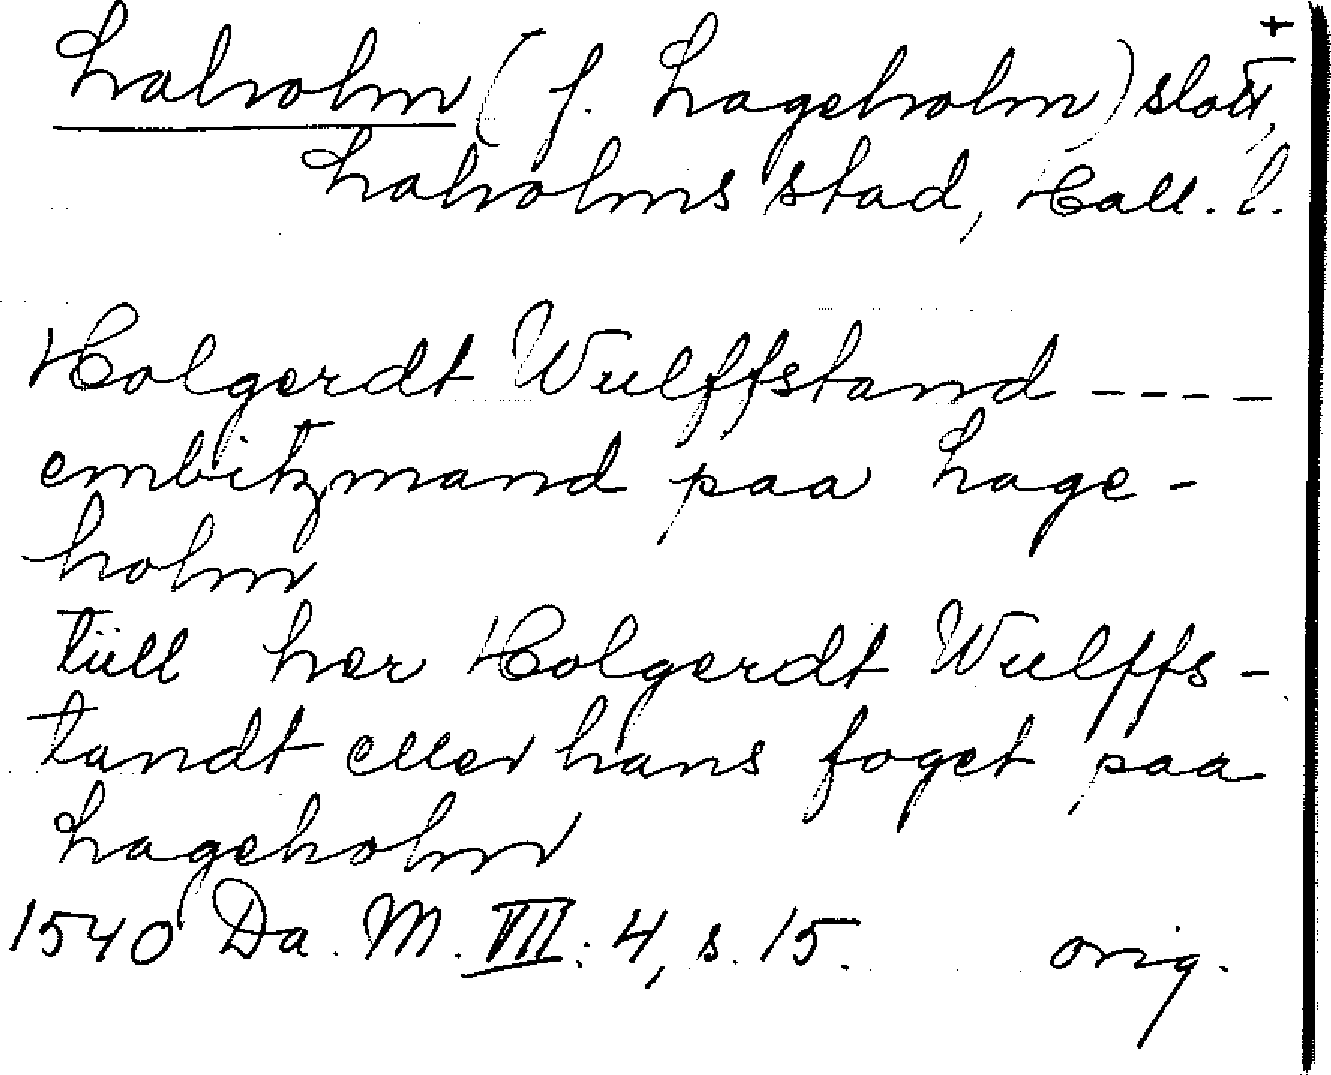 +
Laholm (f. Lageholm) slott,
Laholms stad, Hall. l.
Holgerdt Wulffstand ----
embitzmand paa Lage-
holm
tüll her Holgerdt Wulffs-
tandt eller hans foget paa
Lageholm
1540 Da. M. VII: 4, s. 15. orig.